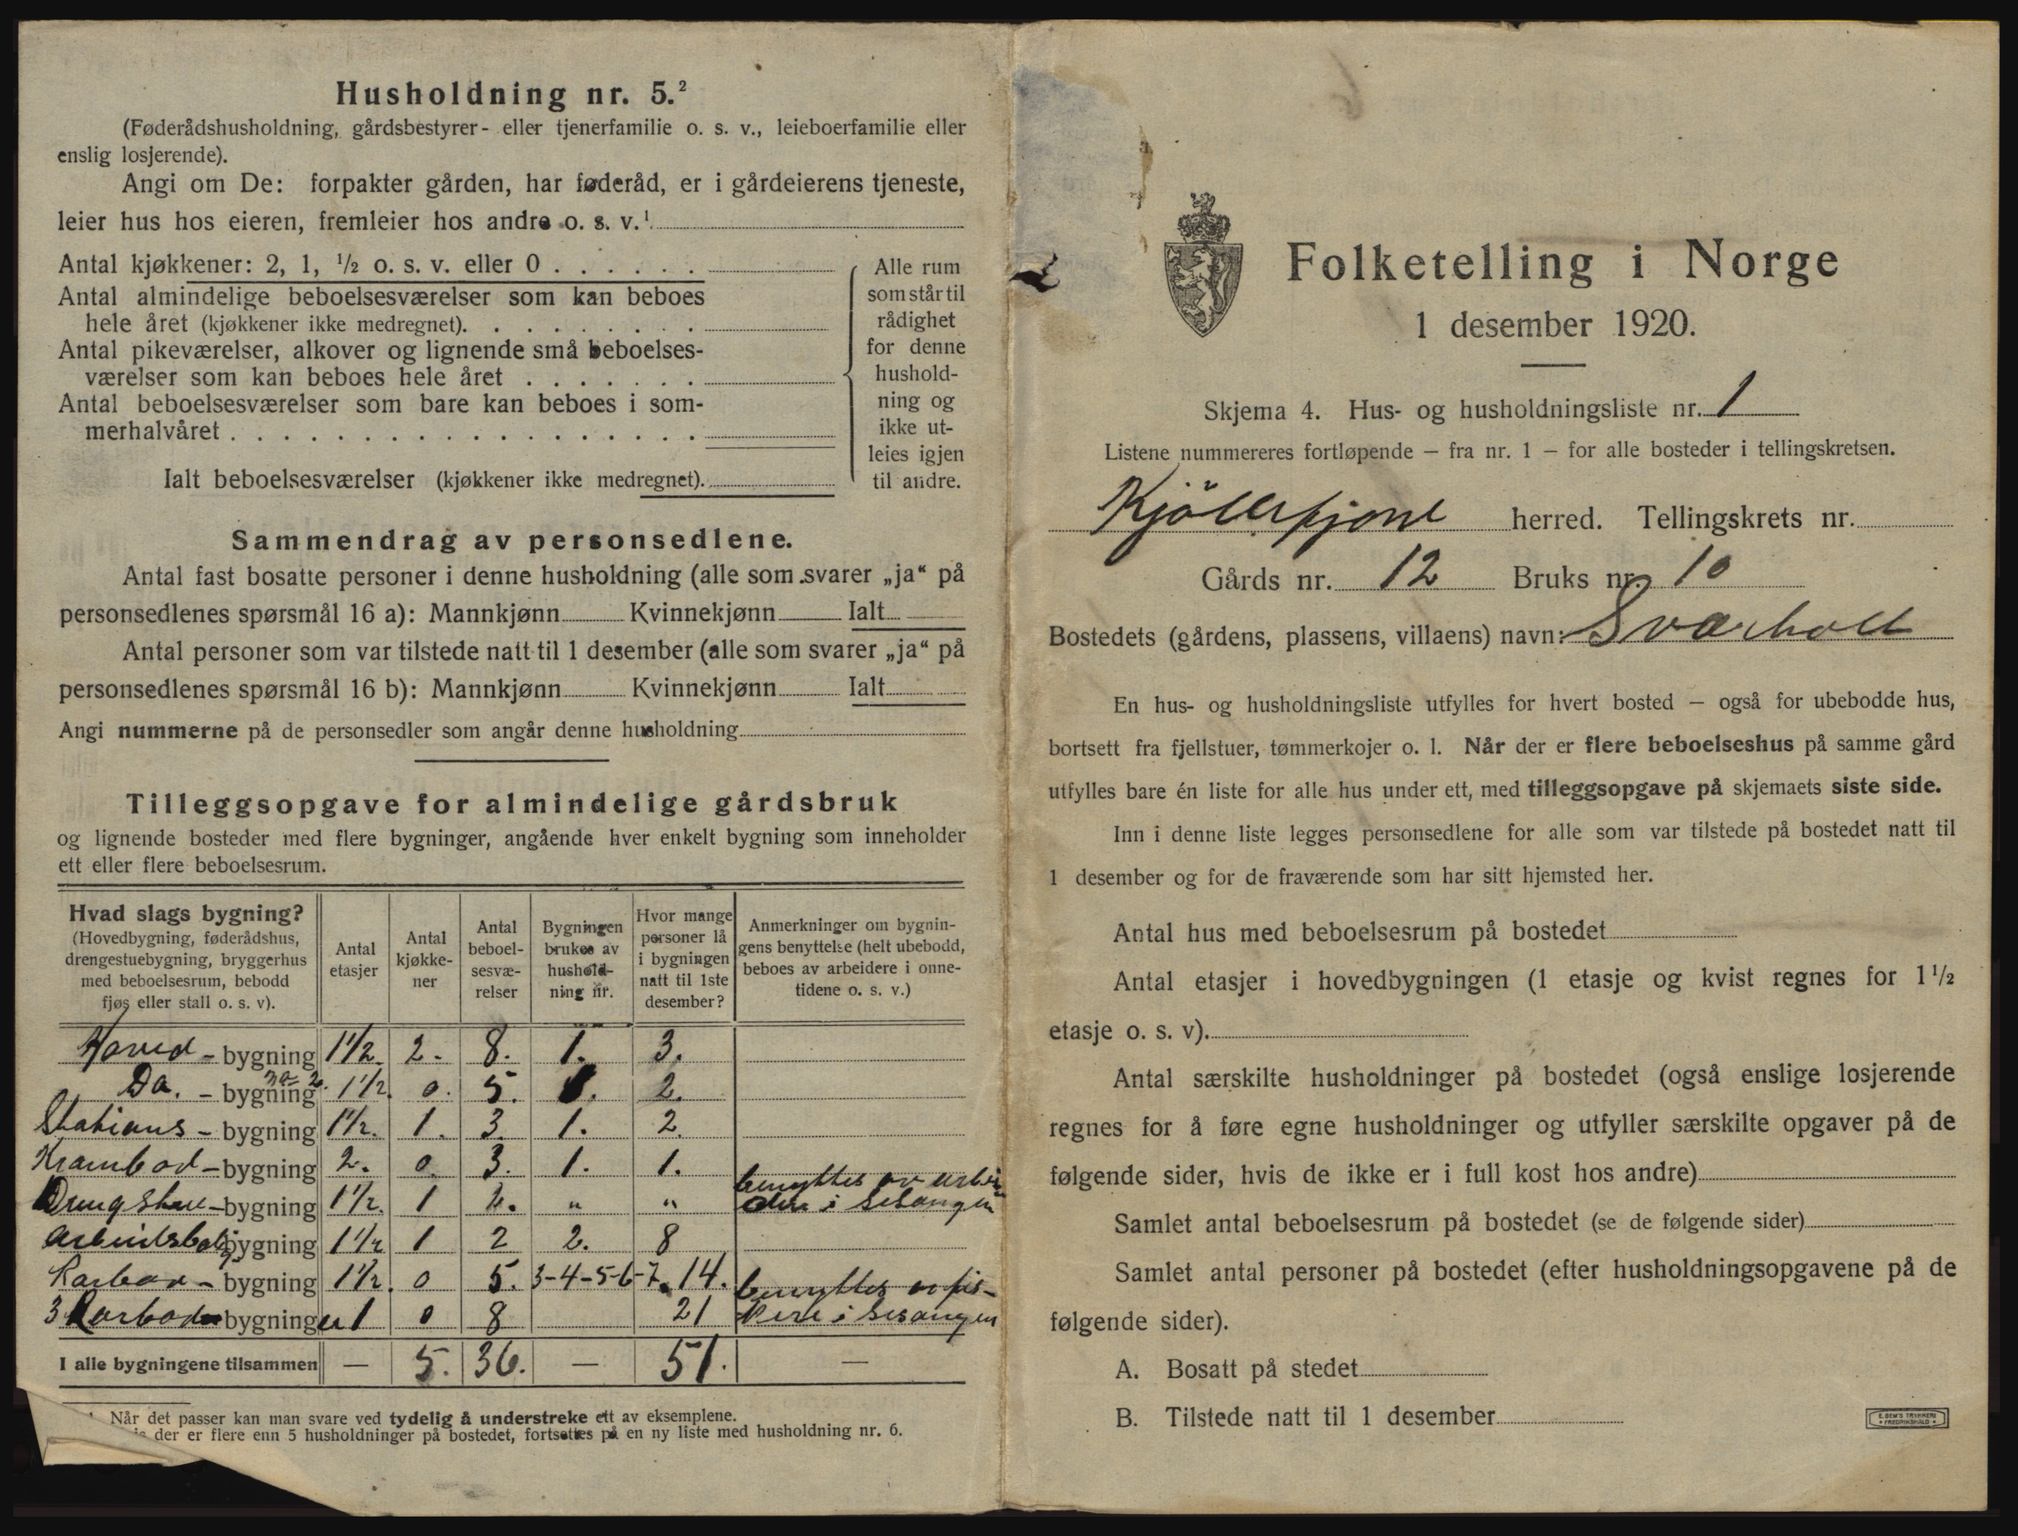 Husholdning nr. 5.²
(Føderådshusholdning, gårdsbestyrer- eller tjenerfamilie o. s. v., leieboerfamilie eller
enslig losjerende).
Angi om De: forpakter gården, har føderåd, er i gårdeierens tjeneste,
leier hus hos eieren, fremleier hos andre o. s. v.¹
Antal kjøkkener: 2, 1, ½ o. s. v. eller 0 . . . . . .
Antal almindelige beboelsesværelser som kan beboes
hele året (kjøkkener ikke medregnet). . . . . . . . .
Antal pikeværelser, alkover og lignende små beboelses-
værelser som kan beboes hele året . . . . . . .
Antal beboelsesværelser som bare kan beboes i som-
merhalvåret . . . . . . . . . . . . . . . . . .
Ialt beboelsesværelser (kjøkkener ikke medregnet).
Alle rum
som står til
rådighet
for denne
hushold-
ning og
ikke ut-
leies igjen
til andre.
Sammendrag av personsedlene.
Antal fast bosatte personer i denne husholdning (alle som svarer „ja“ på
personsedlenes spørsmål 16 a): Mannkjønn Kvinnekjønn Ialt
Antal personer som var tilstede natt til 1 desember (alle som svarer „ja“ på
personsedlenes spørsmål 16 b): Mannkjønn Kvinnekjønn Ialt
Angi nummerne på de personsedler som angår denne husholdning
Tilleggsopgave for almindelige gårdsbruk
og lignende bosteder med flere bygninger, angående hver enkelt bygning som inneholder
ett eller flere beboelsesrum.
Hvad slags bygning?
(Hovedbygning, føderådshus,
drengestuebygning, bryggerhus
med beboelsesrum, bebodd
fjøs eller stall o. s. v).
Antal
etasjer
Antal
kjøkke-
ner
Antal
beboel-
sesvæ-
relser
Bygningen
brukes av
hushold-
ning nr.
Hvor mange
personer lå
i bygningen
natt til 1ste
desember?
Anmerkninger om bygnin-
gens benyttelse (helt ubebodd,
beboes av arbeidere i onne-
tidene o. s. v.)
Hoved-bygning 1½. 2. 8. 1. 3.
Do. -bygning no 2. 1½. 0. 5. 2.
Stations-bygning 1½. 1. 3. 1. 2.
Krambod-bygning 2. 0. 3. 1. 1.
-bygning 1½. 1 „ „ benyttes av arbei-
dere i sesongen
bygning 1½ 1 2 2. 8
Rorbod-bygning 1½. 0 5. 3-4-5-6-7. 14.
3 Rorbod bygninger 1 0 8 21 benyttes av fis-
kere i sesongen
I alle bygningene tilsammen — 5. 36. — 51. —
1. Når det passer kan man svare ved tydelig å understreke ett av eksemplene.
der er flere enn 5 husholdninger på bostedet, fortsettes på en ny liste med husholdning nr. 6.
Folketelling i Norge
1 desember 1920.
Skjema 4. Hus- og husholdningsliste nr. 1
Listene nummereres fortløpende — fra nr. 1 — for alle bosteder i tellingskretsen.
Kjöllefjord herred. Tellingskrets nr.
Gårds nr. 12 Bruks nr. 10
Bostedets (gårdens, plassens, villaens) navn: Sværholt
En hus- og husholdningsliste utfylles for hvert bosted — også for ubebodde hus,
bortsett fra fjellstuer, tømmerkojer o. l. Når der er flere beboelseshus på samme gård
utfylles bare én liste for alle hus under ett, med tilleggsopgave på skjemaets siste side.
Inn i denne liste legges personsedlene for alle som var tilstede på bostedet natt til
1 desember og for de fraværende som har sitt hjemsted her.
Antal hus med beboelsesrum på bostedet
Antal etasjer i hovedbygningen (1 etasje og kvist regnes for 1½
etasje o. s. v).
Antal særskilte husholdninger på bostedet (også enslige losjerende
regnes for å føre egne husholdninger og utfyller særskilte opgaver på de
følgende sider, hvis de ikke er i full kost hos andre)
Samlet antal beboelsesrum på bostedet (se de følgende sider)
Samlet antal personer på bostedet (efter husholdningsopgavene på de
følgende sider).
A. Bosatt på stedet
B. Tilstede natt til 1 desember
E. SEM'S TRYKKERI
FREDRIKSHALD